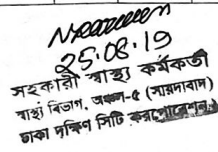 25.08.19
সহকারী স্বাস্থ্য কর্মকর্তা
স্বাস্থ্য বিভাগ, অঞ্চল-৫ (সায়দাবাদ)
ঢাকা দক্ষিণ সিটি করপোরেশন